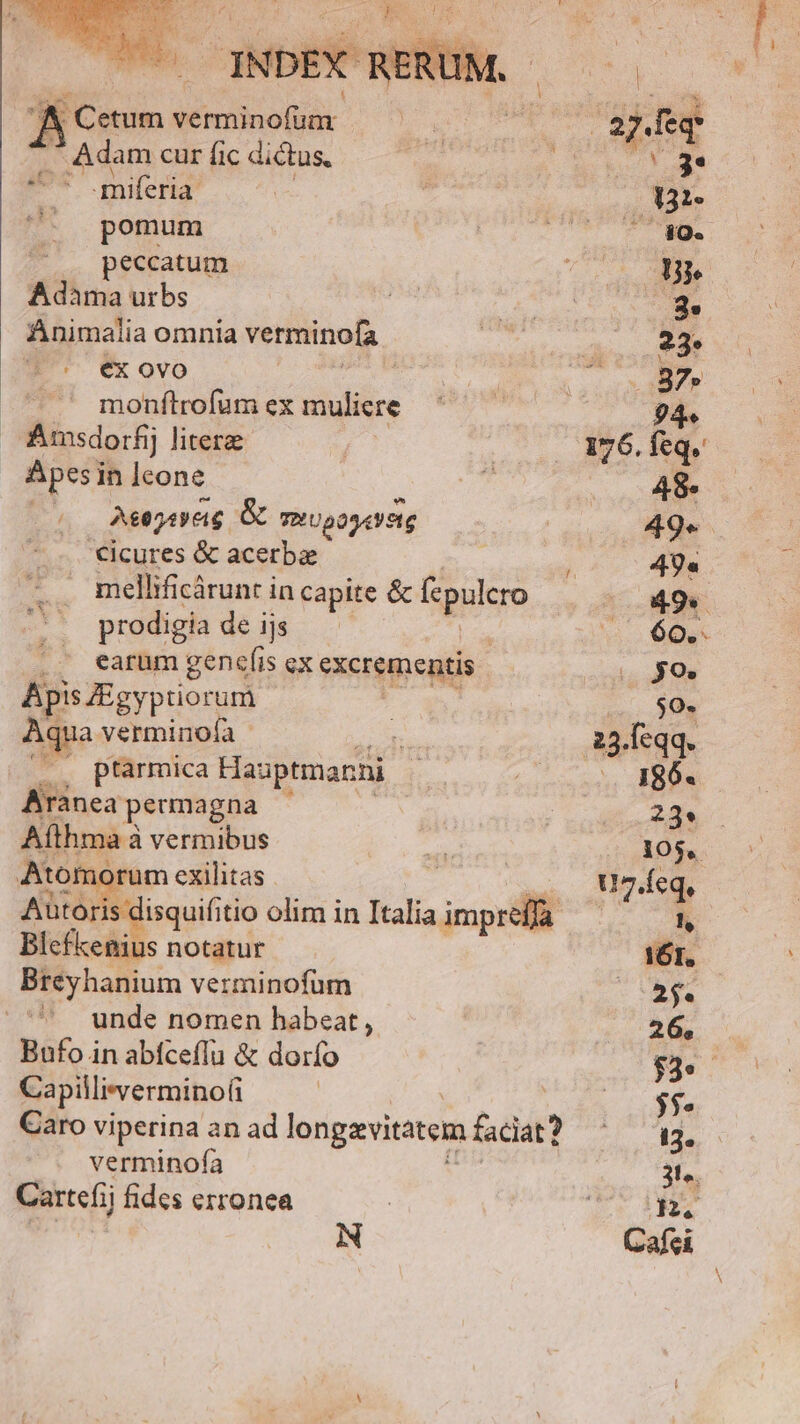 INDEX RERUM.
ACetum verminoſum 27. ſeq.
Adam cur ſic dictus. 3.
miſeria 132.
pomum 10.
peccatum
Adama urbs 3.
Animalia omnia verminoſa 23.
ex ovo 37.
monſtroſum ex muliere 94.
Amsdorfij literæ 176. ſeq.
Apes in leone 48.
& 49.
cicures & acerbæ 49.
mellificârunt in capite & ſepulcro 49.
prodigia de ijs 60.
earum geneſis ex excrementis 50.
Apis Ægyptiorum 50.
Aqua verminoſa 23. ſeqq.
ptarmica Hauptmanni 186.
Aranea permagna 23.
Aſthma à vermibus 105.
Atomorum exilitas 117. ſeq.
Autoris disquiſitio olim in Italia impreſſa 1,
Blefkenius notatur 161.
Breyhanium verminoſum 25.
unde nomen habeat, 26.
Bufo in abſceſſu & dorſo 53.
Capilli verminoſi 55.
Caro viperina an ad longævitatem faciat? 13.
verminoſa 31.
Carteſij fides erronea 12.
N Caſei